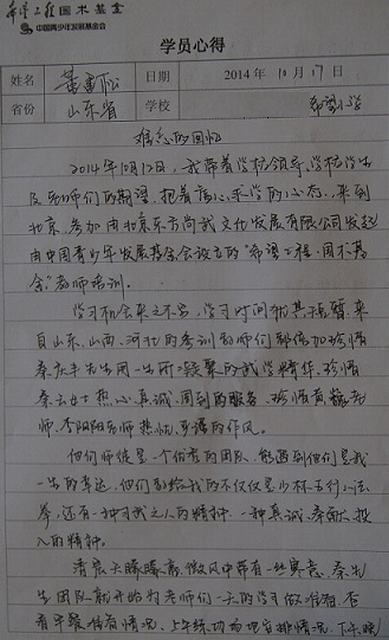 希望工程国术基金
中国青少年发展基金会
学员心得
姓名 董雪松 日期 2014年10月17日
省份 山东省 学校 希望小学
难忘的回忆
2014年10月12日，我带着学校领导、学校学生
及老师们的期望，抱着虚心求学的心态，来到
北京，参加由北京东方尚武文化发展有限公司发起
由中国青少年发展基金会设立的“希望工程·国术基
金”教师培训。
学习机会来之不易，学习时间尤其短暂，来
自山东、山西、河北的参训教师们都倍加珍惜
秦庆丰先生用一生所凝聚的武学精华，珍惜
秦云女士热心、真诚、周到的服务，珍惜黄巍老
师、李阳阳老师热忱、的作风。
他们师徒是一个优秀的团队，能遇到他们是我
一生的幸运，他们教给我的不仅仅是少林五行八法
拳，还有一种习武之人的精神，一种真诚、奉献、投
入的精神。
清晨天朦朦亮，微风中带有一丝寒意，秦先
生团队就开始为老师们一天的学习做准备，查
看早餐准备情况、上午练功场地安排情况、下午晚